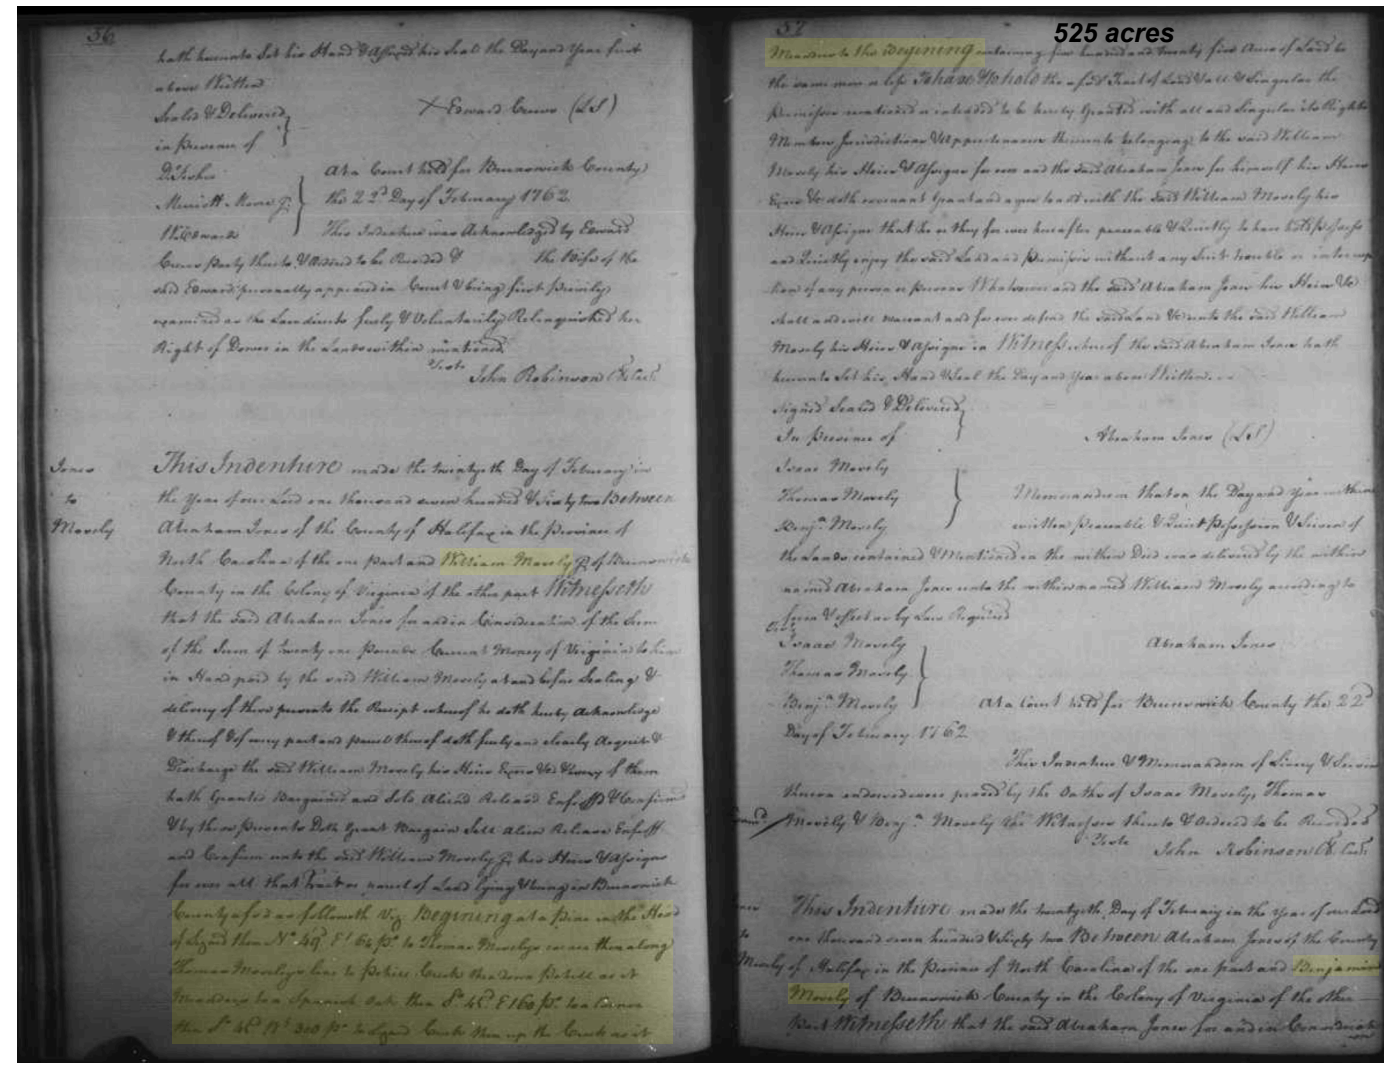 56
hath hereunto Set his Hand & Affixed his Seal the Day and Year first
above Written
Sealed & Delivered
in Presence of
Edward Crews (LS)
At a Court held for Brunswick County
Merritt Moore Jr.
the 22d Day of February 1762
This Indenture was Acknowledged by Edward
Crews Party thereto & Ordered to be Recorded & the Wife of the
said Edward personally appeared in Court & being first Privily
examined as the Law directs freely & Voluntarily Relinquished her
Right of Dower in the Lands within mentioned
Teste
John Robinson Cl. Cur.
Jones
to
Mosely
This Indenture made the twentyeth Day of February in
the Year of our Lord one thousand seven hundred & Sixty two Between
Abraham Jones of the County of Halifax in the Province of
North Carolina of the one part and William Mosely Jr. of Brunswick
County in the Colony of Virginia of the other part Witnesseth
that the said Abraham Jones for and in Consideration of the Sum
of the Sum of twenty one Pounds Current Money of Virginia to him
in Hand paid by the said William Mosely at and before Sealing &
delivery of these presents the Receipt whereof he doth hereby Acknowledge
& thereof & of every part and parcell thereof doth freely and clearly Acquit &
Discharge the said William Mosely his Heirs Exrs &c & every of them
hath Granted Bargained and Sold Aliend Released Enfeoff'd & Confirmed
& by these Presents Doth Grant Bargain Sell Alien Release Enfeoff
and Confirm unto the said William Mosely Jr. his Heirs & Assigns
for ever all that Tract or parcel of Land lying & being in Brunswick
County & bd as followeth Viz. Begining at a Pine in the Head
of Lizard then No. 49d Et 64 Ps. to Thomas Moselys corner then along
Thomas Moselys line to Creek then down as it
Meanders to a Spanish Oak then So. 45d E 160 Ps. to a
then So. 45d Wt 300 Ps. to Lizard Creek then up the Creek as it
57
525 acres
Meanders to the Begining containing five hundred and twenty five Acres of Land be
the same more or less To have & to hold the afsd Tract of Land & all & Singular the
Premisses mentioned or intended to be hereby Granted with all and Singular its Rights
Members Jurisdictions & Appurtenances thereunto belonging to the said William
Mosely his Heirs & Assigns for ever and the said Abraham Jones for himself his Heirs
Exrs &c doth covenant Grant and agree to and with the said William Mosely his
Heirs & Assigns that he or they for ever hereafter peaceable & Quietly to have hold possess
and Quietly enjoy the said Land and Premises without any Suit trouble or interrup
tion of any person or Persons Whatsoever and the said Abraham Jones his Heirs &c
shall and will warrant and for ever defend the said Land &c unto the said William
Mosely his Heirs & Assigns in Witness whereof the said Abraham Jones hath
hereunto Set his Hand & Seal the Day and Year above Written
Signed Sealed & Delivered
In Presence of
Abraham Jones (LS)
Isaac Mosely
Thomas Mosely
Benjn. Mosely
Memorandum that on the Day and Year within
written Peaceable & Quiet Possession & Seisen of
the Lands contained & Mentioned in the within Deed was delivered by the within
named Abraham Jones unto the within named William Mosely according to
form & effect as by Law Required
Teste
Isaac Mosely
Abraham Jones
Thomas Mosely
Benjn. Mosely
At a Court held for Brunswick County the 22d
Day of February 1762
This Indenture & Memorandum of Livery & Seisin
thereon endorsed were proved by the Oaths of Isaac Mosely, Thomas
Mosely & Benjn. Mosely the Witnesses thereto & Ordered to be Recorded
Teste
John Robinson Cl. Cur.
to
Mosely
This Indenture made the twentyeth Day of February in the Year of our Lord
one thousand seven hundred & Sixty two Between Abraham Jones of the County
of Halifax in the Province of North Carolina of the one part and Benjamin
Mosely of Brunswick County in the Colony of Virginia of the other
Part Witnesseth that the said Abraham Jones for and in Consideration